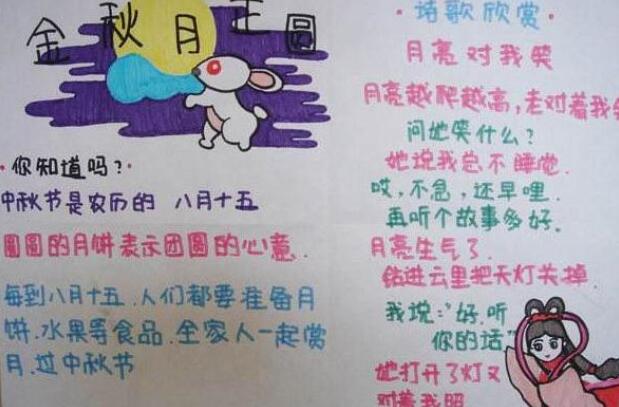 金秋月正圆
·你知道吗?·
中秋节是农历的 八月十五
圆圆的月饼表示团圆的心意.
每到八月十五.人们都要准备月
饼.水果等食品.全家人一起赏
月.过中秋节
·诗歌欣赏·
月亮对我笑
月亮越爬越高,老对着我
问她笑什么?
她说我总不睡觉.
哎,不急,还早哩.
再听个故事多好.
月亮生气了.
钻进云里把天灯关掉.
我说:"好.听
你的话"
她打开了灯又
对着我照